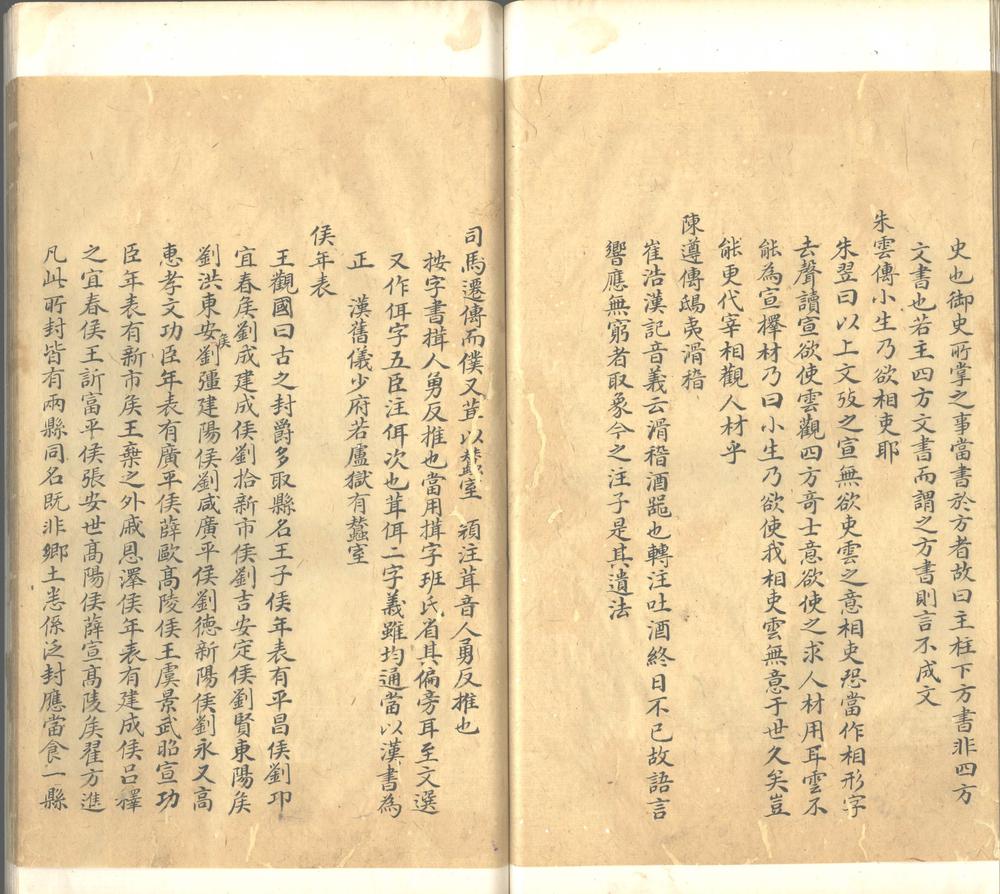 史也御史所掌之事當書於方者故曰主柱下方書非四方
文書也若主四方文書而謂之方書則言不成文
朱雲傳小生乃欲相吏耶
朱翌曰以上文攷之宣無欲吏雲之意相吏恐當作相形字
去聲讀宣欲使雲觀四方奇士意欲使之求人材用耳雲不
能為宣擇材乃曰小生乃欲使我相吏雲無意于世久矣豈
能更代宰相觀人材乎
陳遵傳鴟夷滑稽
崔浩漢記音義云滑稽酒噐也轉注吐酒終日不已故語言
響應無窮者取象今之注子是其遺法
司馬遷傳而僕又茸以蠶室 頑注茸音人勇反推也
按字書搑人勇反推也當用搑字班氏省其偏旁耳至文選
又作佴字五臣注佴次也茸佴二字義雖均通當以漢書為
正 漢舊儀少府若盧獄有蠶室
侯年表
王觀國曰古之封爵多取縣名王子侯年表有平昌侯劉卭
宜春侯劉成建成侯劉拾新市侯劉吉安定侯劉賢東陽侯
劉洪東安侯劉彊建陽侯劉咸廣平侯劉德新陽侯劉永又高
惠孝文功臣年表有廣平侯薛歐高陵侯王虞景武昭宣功
臣年表有新市侯王棄之外戚恩澤侯年表有建成侯呂釋
之宜春侯王訢富平侯張安世高陽侯薛宣高陵侯翟方進
凡此所封皆有兩縣同名既非鄉土恙係泛封應當食一縣